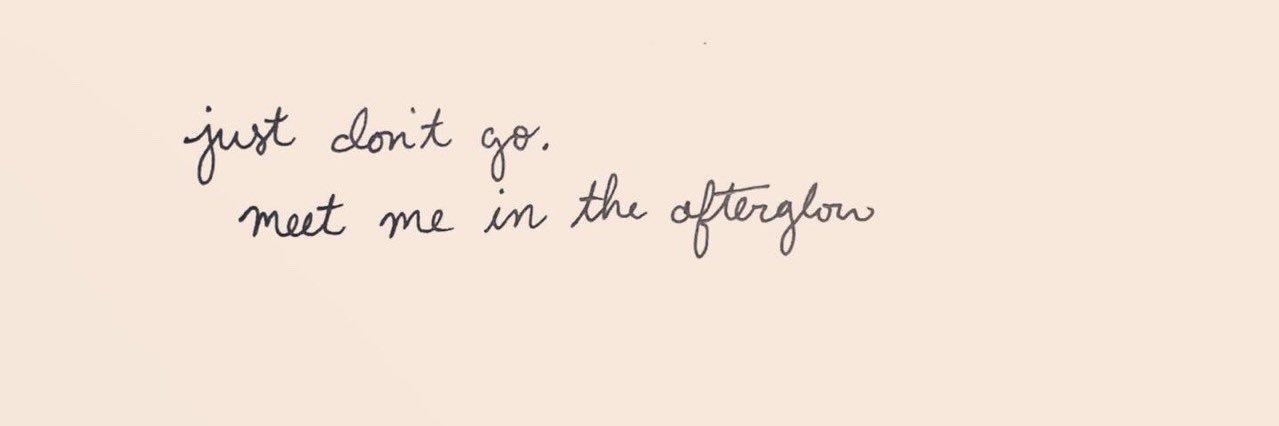 just don't go.
meet me in the afterglow